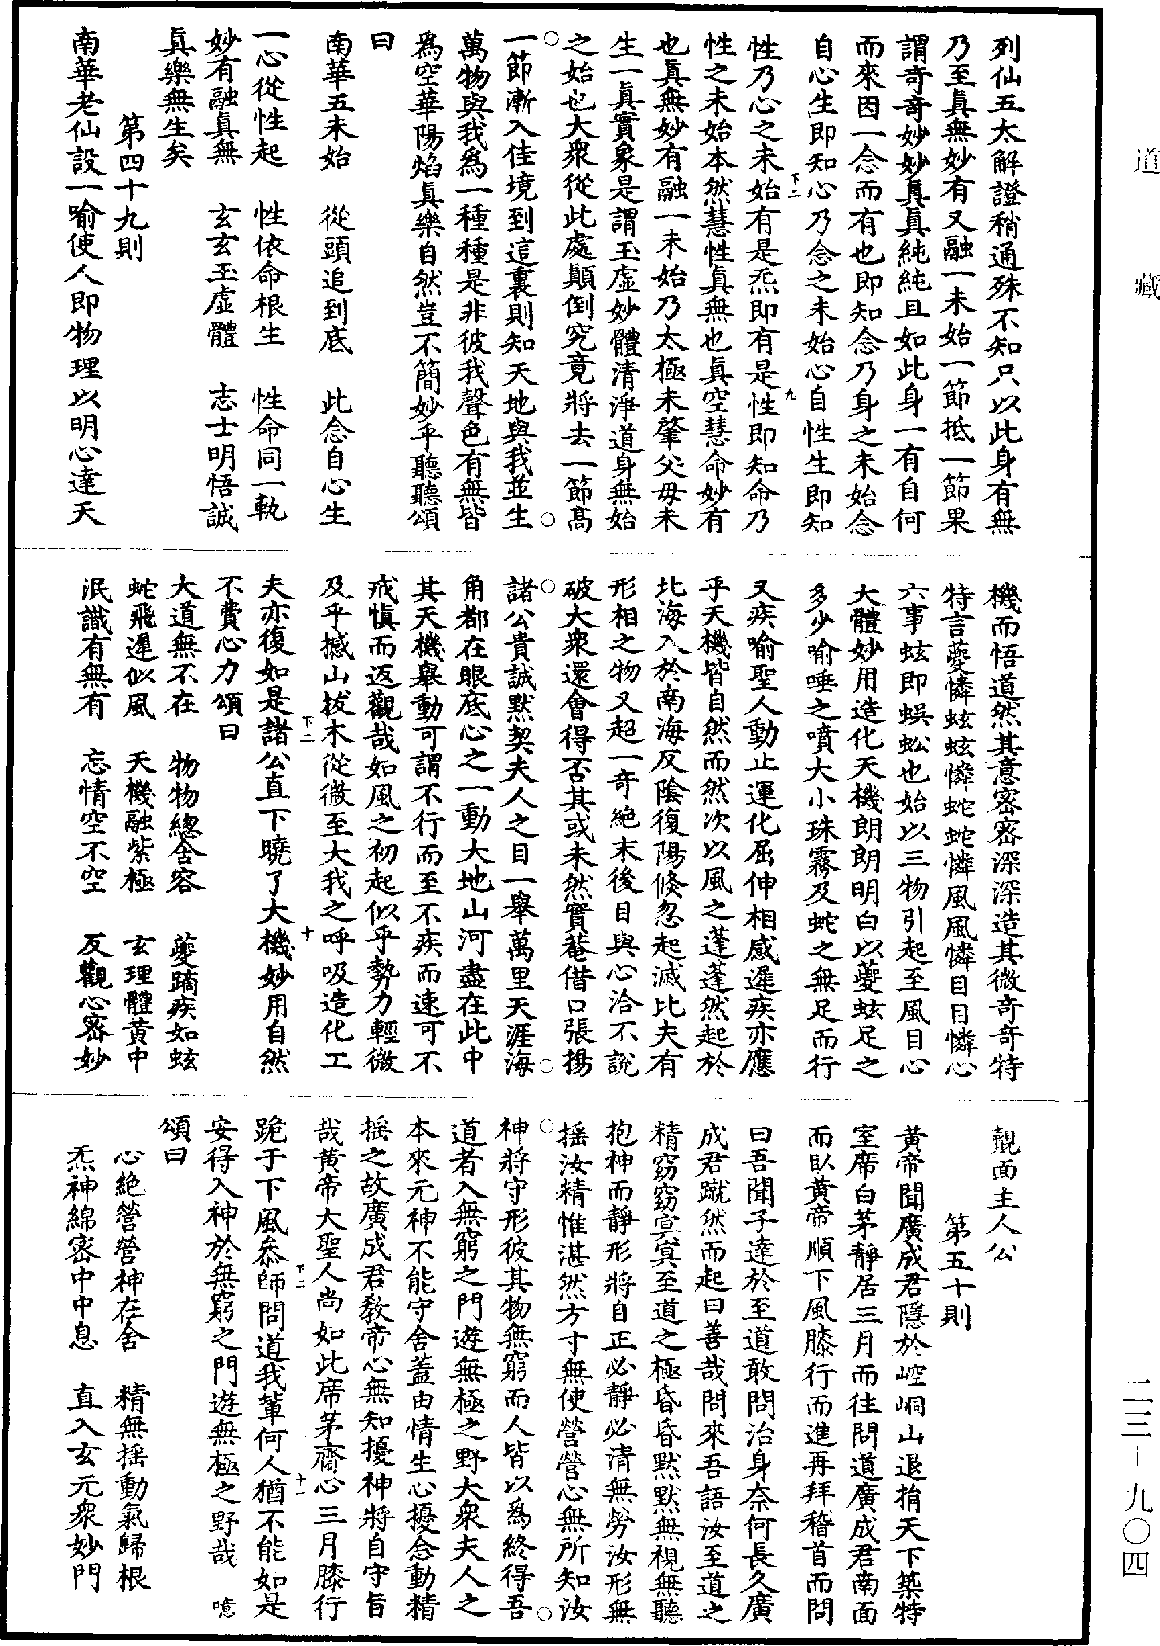 道藏
二三—九〇四
列仙五太解證稍通殊不知只以此身有無
乃至真無妙有又融一未始一節抵一節果
謂奇奇妙妙真真純純且如此身一有自何
而來因一念而有也即知念乃身之未始念
自心生即知心乃念之未始心自性生即知
性乃心之未始有是炁即有是性即知命乃
性之未始本然慧性真無也真空慧命妙有
也真無妙有融一未始乃太極未肇父母未
生一真實象是謂玉虛妙體清淨道身無始
之始也大衆從此處顛倒究竟將去一節高
一節漸入佳境到這裏則知天地與我並生
萬物與我爲一種種是非彼我聲色有無皆
爲空華陽焰真樂自然豈不簡妙乎聽聽頌
曰
南華五未始　從頭追到底　此念自心生
一心從性起　性依命根生　性命同一執
妙有融真無　玄玄玉虛體　志士明悟誠
真樂無生矣
第四十九則
南華老仙設一喻使人即物理以明心達天
機而悟道然其意密密深深造其微奇奇特
特言夔憐蚿蚿憐蛇蛇憐風風憐目目憐心
六事蚿即蜈蚣也始以三物引起至風目心
大體妙用造化天機朗朗明白以夔蚿足之
多少喻唾之噴大小珠霧及蛇之無足而行
又疾喻聖人動止運化屈伸相感遲疾亦應
乎天機皆自然而然次以風之蓬蓬然起於
北海入於南海反陰復陽倐忽起滅比夫有
形相之物又超一奇絕末後目與心洽不說
破大衆還會得否其或未然實菴借口張揚
諸公貴誠默契夫人之目一舉萬里天涯海
角都在眼底心之一動大地山河盡在此中
其天機舉動可謂不行而至不疾而速可不
戒慎而返觀哉如風之初起似乎勢力輕微
及乎撼山拔木從微至大我之呼吸造化工
夫亦復如是諸公直下曉了大機妙用自然
不費心力頌曰
大道無不在　物物總含容　夔蹢疾如蚿
蛇飛遲似風　天機融紫極　玄理體黃中
泯識有無有　忘情空不空　反觀心密妙
覿面主人公
第五十則
黃帝聞廣成君隱於崆峒山退捐天下築特
室席白茅靜居三月而往問道廣成君南面
而臥黃帝順下風膝行而進再拜稽首而問
曰吾聞子達於至道敢問治身奈何長久廣
成君蹴然而起曰善哉問來吾語汝至道之
精窈窈冥冥至道之極昏昏默默無視無聽
抱神而靜形將自正必靜必清無勞汝形無
搖汝精惟湛然方寸無使營營心無所知汝
神將守形彼其物無窮而人皆以爲終得吾
道者入無窮之門遊無極之野大衆夫人之
本來元神不能守舍蓋由情生心擾念動精
搖之故廣成君教帝心無知擾神將自守旨
哉黃帝大聖人尚如此席茅齋心三月膝行
跪于下風叅師問道我輩何人猶不能如是
安得入神於無窮之門遊無極之野哉　噫
頌曰
心絕營營神在舍　精無搖動氣歸根
炁神綿密中中息　直入玄元衆妙門
下二
九
下二
十
下二
十一